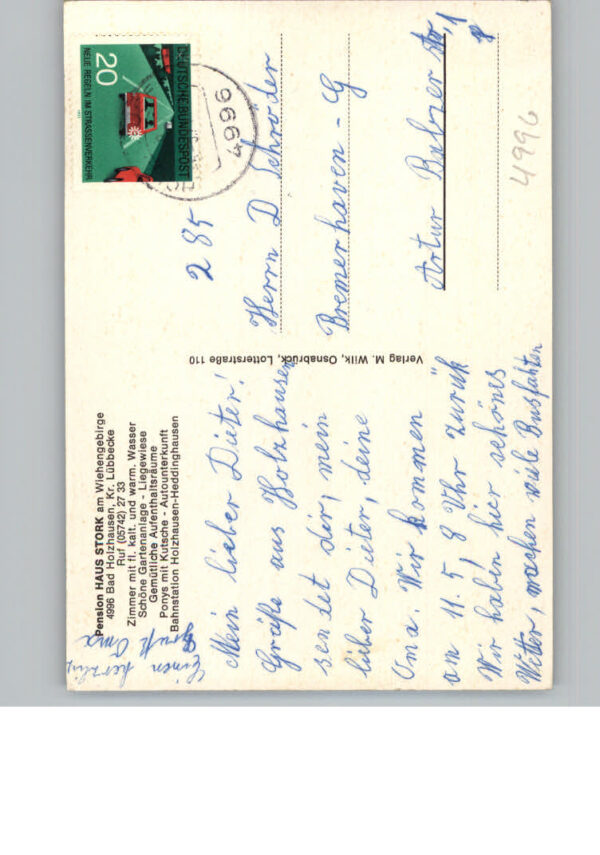 Pension HAUS STORK am Wiehengebirge
4996 Bad Holzhausen, Kr. Lübbecke
Ruf (05742) 27 33
Zimmer mit fl. kalt. und warm. Wasser
Schöne Gartenanlage - Liegewiese
Gemütliche Aufenthaltsräume
Ponys mit Kutsche - Autounterkunft
Bahnstation Holzhausen-Heddinghausen
Mein lieber Dieter!
Grüße aus Holzhausen
sendet dir, mein
lieber Dieter, deine
Oma. Wir kommen
am 11.5, 8 Uhr zurück
Wir haben hier schönes
Wetter, machen viele Busfahrten
Einen herzlich
Gruß Oma
Verlag M. Wilk, Osnabrück, Lotterstraße 110
DEUTSCHE BUNDESPOST
20
NEUE REGELN IM STRASSENVERKEHR
285
Herrn D Schröder
Bremerhaven - G
Artur Str. 1
4996